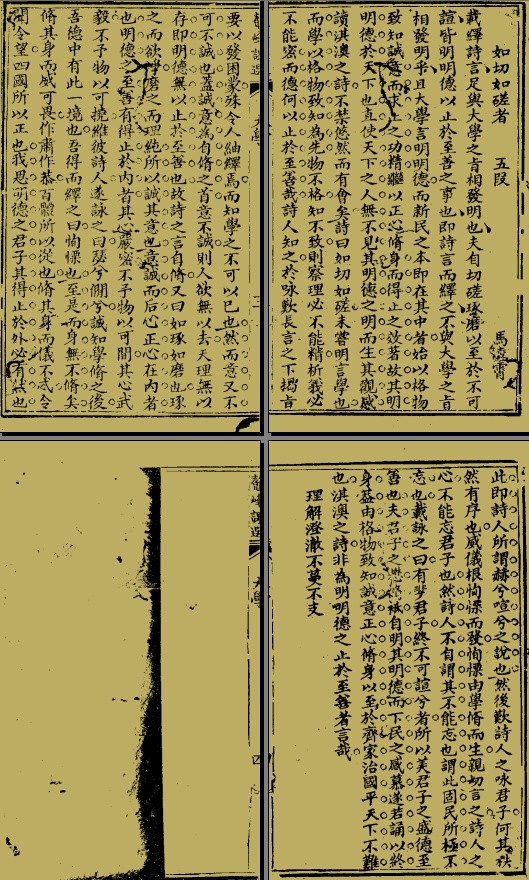 如切如磋者 五段 馬凌霄
載繹詩言足與大學之旨相發明也夫自切磋琢磨以至於不可
諠皆明明德以止於至善之事也即詩言而繹之不與大學之旨
相發明乎且大學言明明德而新民之本即在其中者始以格物
致知誠意而求止之功精繼以正心脩身而得止之效著故其明
明德於天下也直使天下之人無不見其明德之明而生其觀感
讀淇澳之詩不禁悠然而有會矣詩曰如切如磋未嘗明言學也
而學以格物致知為先物不格知不致則察理必不能精析義必
不能密而德何以止於至善哉詩人知之於咏歎長言之下揭言
要以發困蒙殊令人紬繹焉而知學之不可以已也然而意又不
可不誠也蓋誠意為自脩之首意不誠則人欲無以去天理無以
存即明德無以止於至善也故詩之言自脩又曰如琢如磨也琢
之而欲磨之而理純所以誠其意也意誠而后心正心在內者
也明德之至善有得止於內者其心嚴密不予物以可間其心武
毅不予物以可撓維彼詩人遂詠之曰瑟兮僩兮誠知學脩之後
吾德中有此一境也吾得而繹之曰恂慄也至是而身無不脩矣
脩其身而威可畏作肅作恭百體所以從也脩其身而儀不忒令
聞令望四國所以正也我思明德之君子其得止於外必有然也
大學
此即詩人所謂赫兮喧兮之說也然後歎詩人之咏君子何其秩
然有序也威儀根恂慄而發恂慄由學脩而生親切言之詩人之
心不能忘君子也然詩人不自謂其不能忘也謂此固民所極不
忘也載詠之曰有斐君子終不可諠兮者所以美君子之盛德至
善也夫君子之祗自明其明德而下民之感慕遂若誦以終
身益由格物致知誠意正心脩身以至於齊家治國平天下不難
也淇澳之詩非為明明德之止於至善者言哉
理解澄澈不蔓不支
大學
四